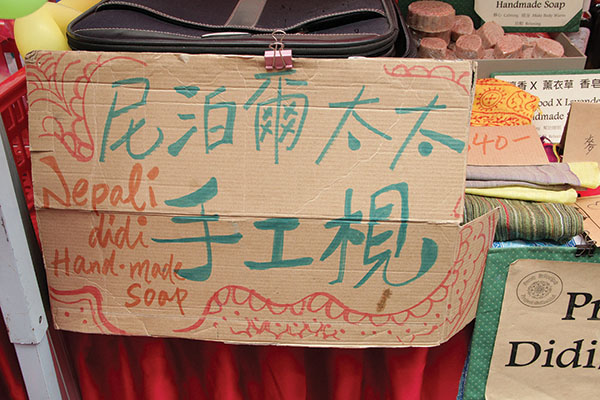 尼泊爾太太
手工梘
Nepali
didi
Hand-made
soap
Handmade Soap
香 X 薰衣草 香皂
ood X Lavend
andmade
40-
麥
P
Didi